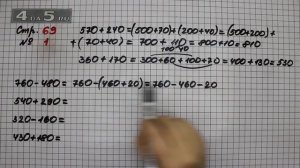 Стр. 69 570+240=(500+70)+(200+40)=(500+200)+
№ 1 +(70+40)= 700 + 110 = 800+10=810
100 10
360+170= 300+60+100+70=400+130=530
760-480= 760-(460+20)=760-460-20
540+290=
320-160=
430+180=